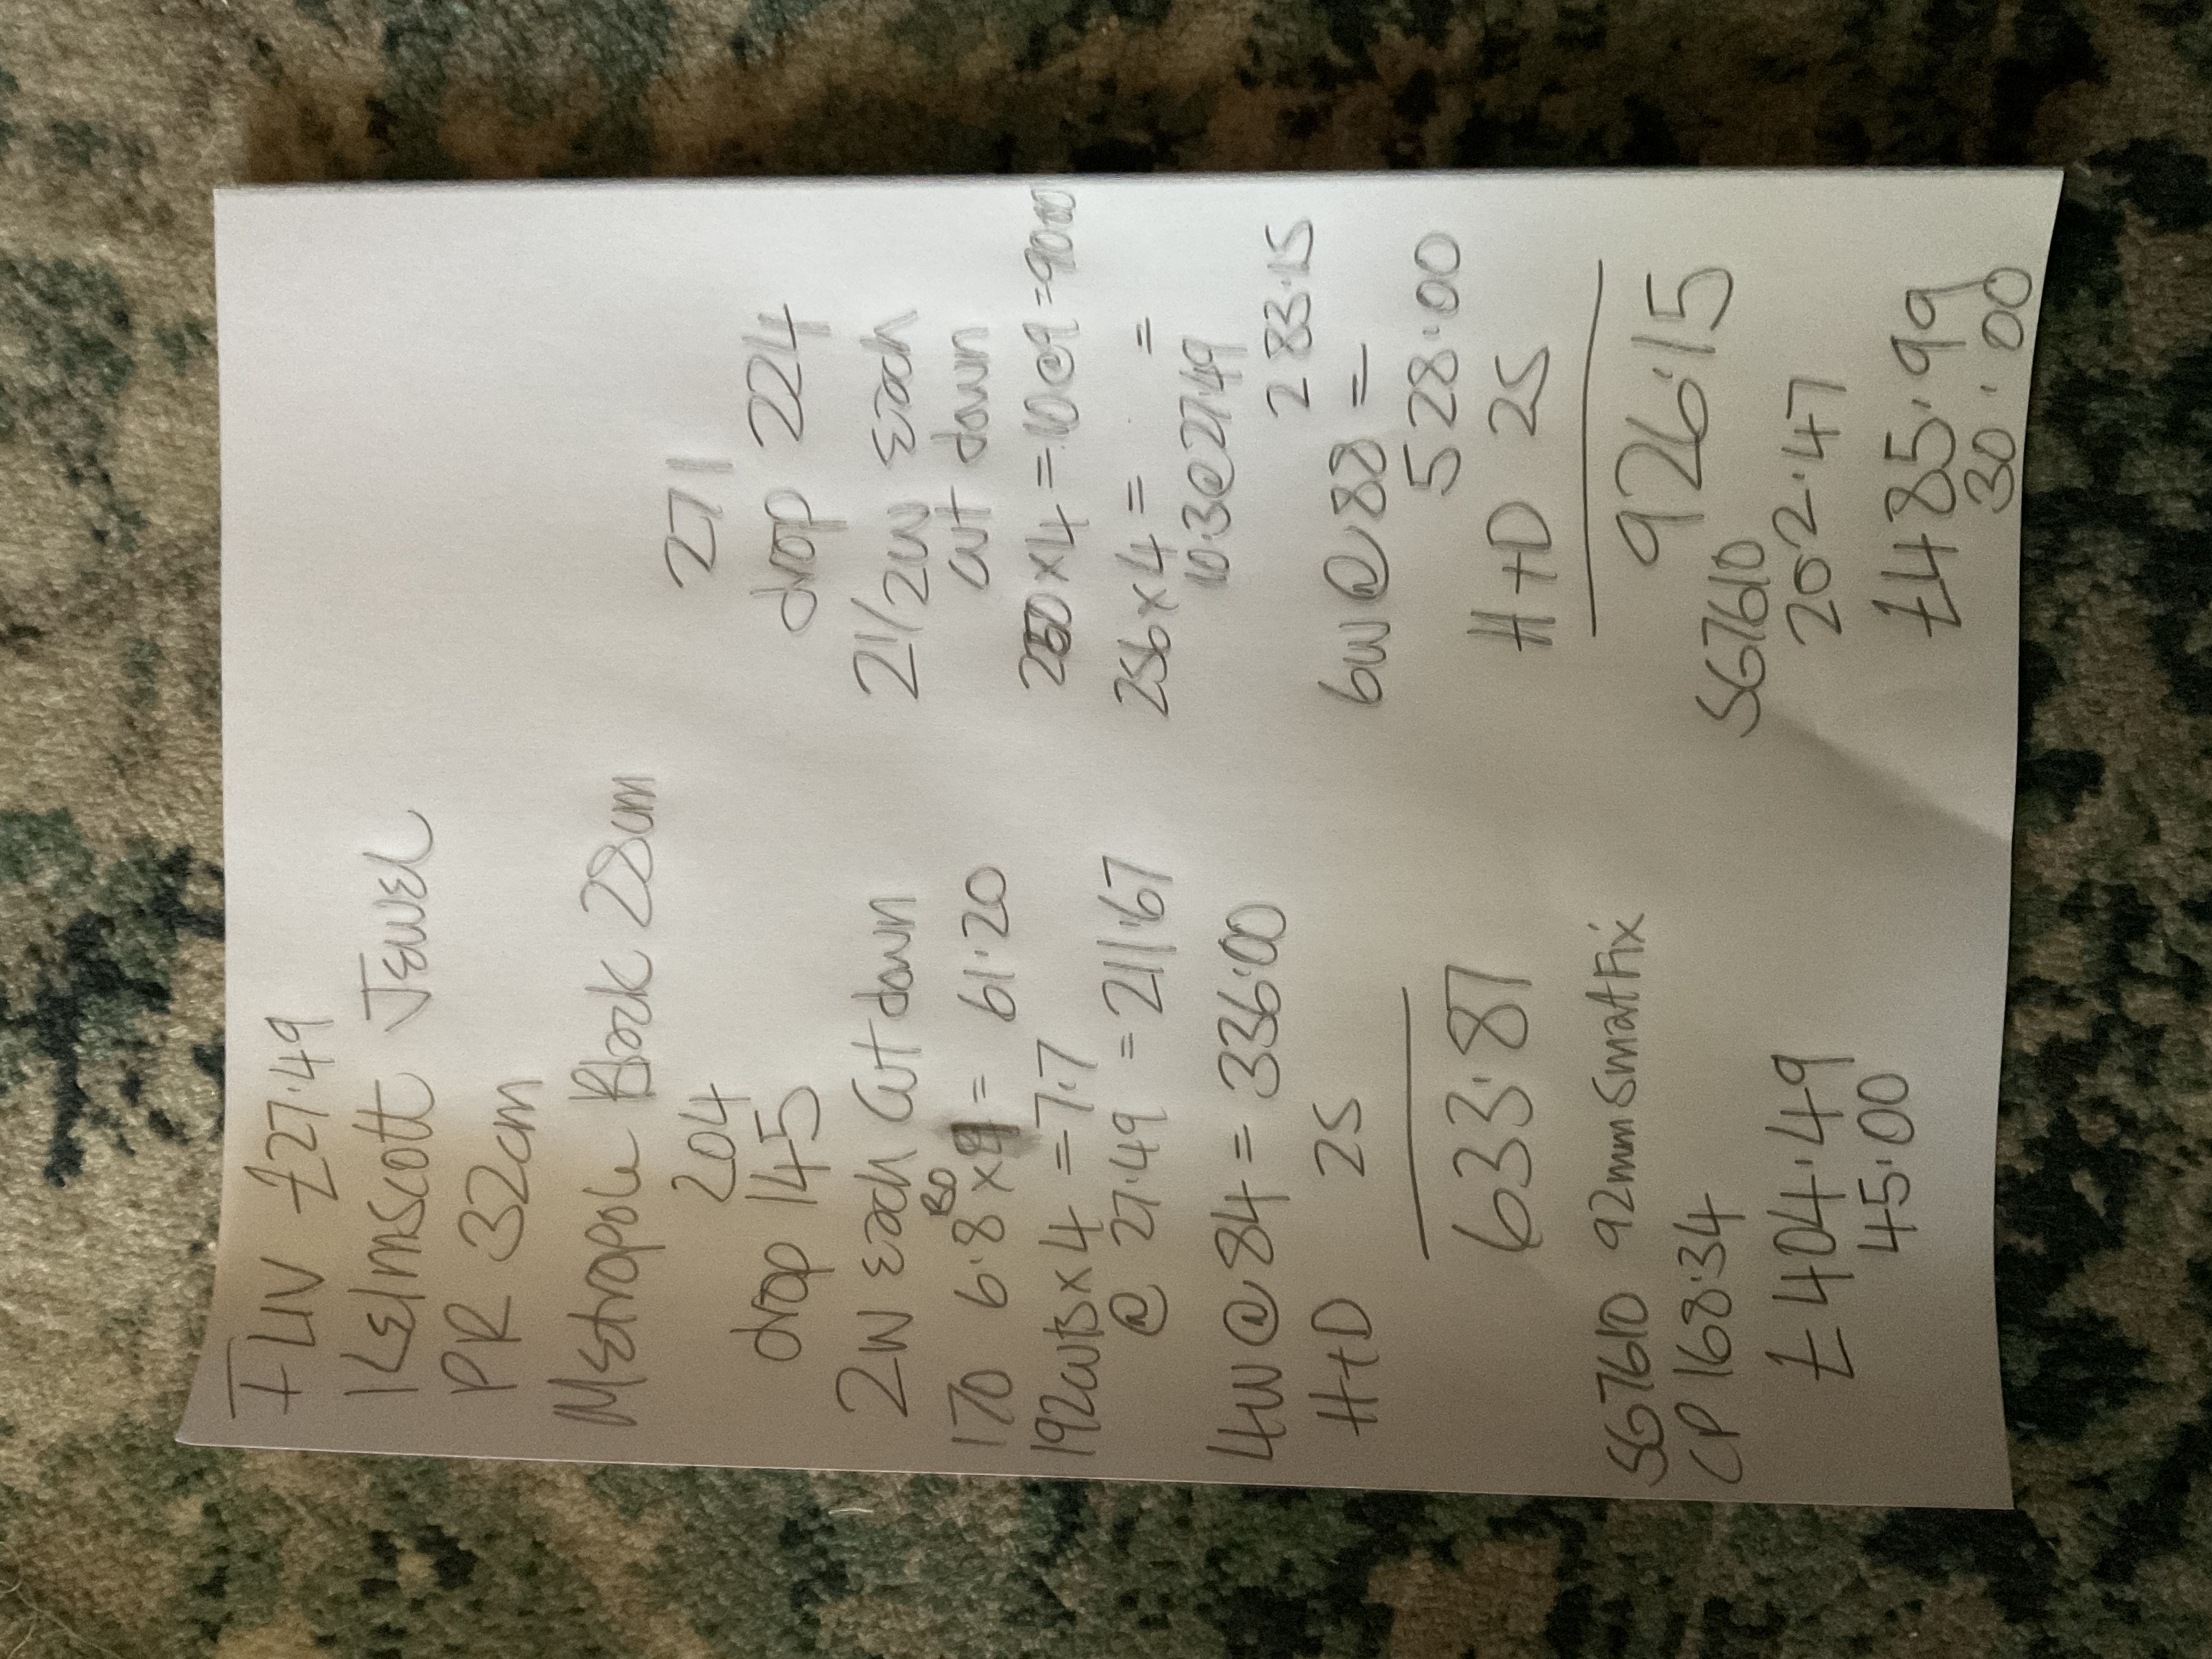 F LIV £27.49
Kelmscott Jewel
PR 32cm
Metropole Black 28cm
204
drop 145
2W Each Cut down
170 6.8 BO x 9 = 61.20
192cuts x 4 = 7.7
@ 27.49 = 211.67
4W @ 84 = 336.00
H+D 25
633.87
S67610 92mm Smartfix
CP 168.34
£404.49
45.00
271
drop 224
2 1/2W Each
cut down
250 x 4 = 10@9 = 90.00
256 x 4 = =
10.3@27.49
283.15
6W @ 88 =
528.00
H+D 25
926.15
S67610
202.47
£485.99
30.00